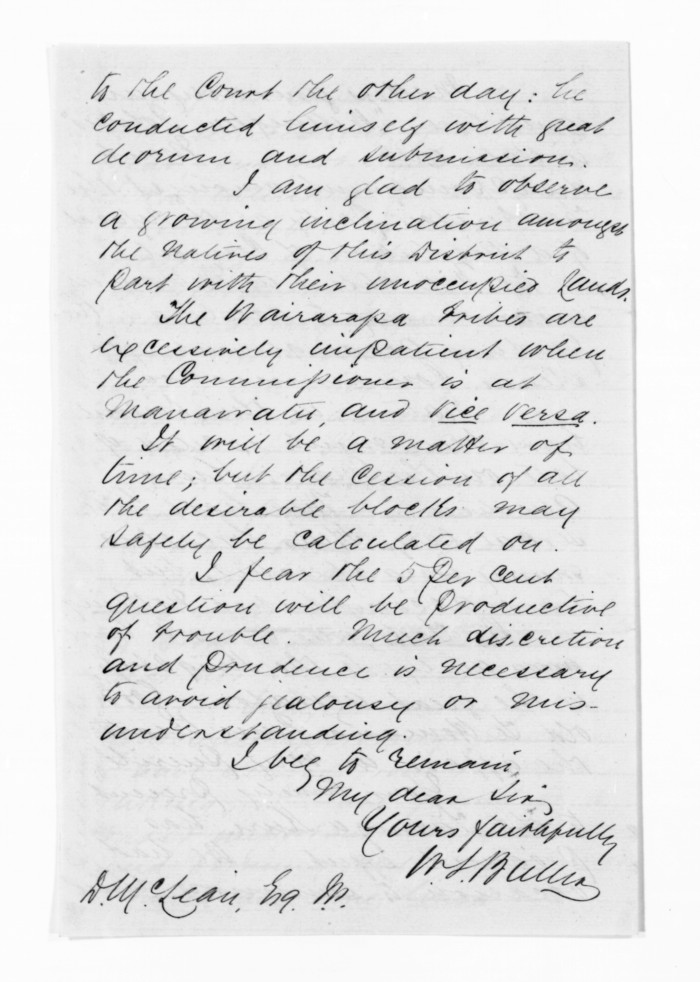 to the Court the other day: he
conducted himself with great
decorum and submission.
I am glad to observe
a growing inclination amongst
the Natives of this District to
part with their unoccupied Lands.
The Wairarapa tribes are
excessively impatient when
the Commissioner is at
Manawatu, and Vice Versa.
It will be a matter of
time; but the cession of all
the desirable blocks may
safely be calculated on.
I fear the 5 per cent
question will be productive
of trouble. Much discretion
and prudence is necessary
to avoid jealousy or mis-
understanding.
I beg to remain
My dear Sir
Yours faithfully
W. L. Buller
D. McLean, Esq.